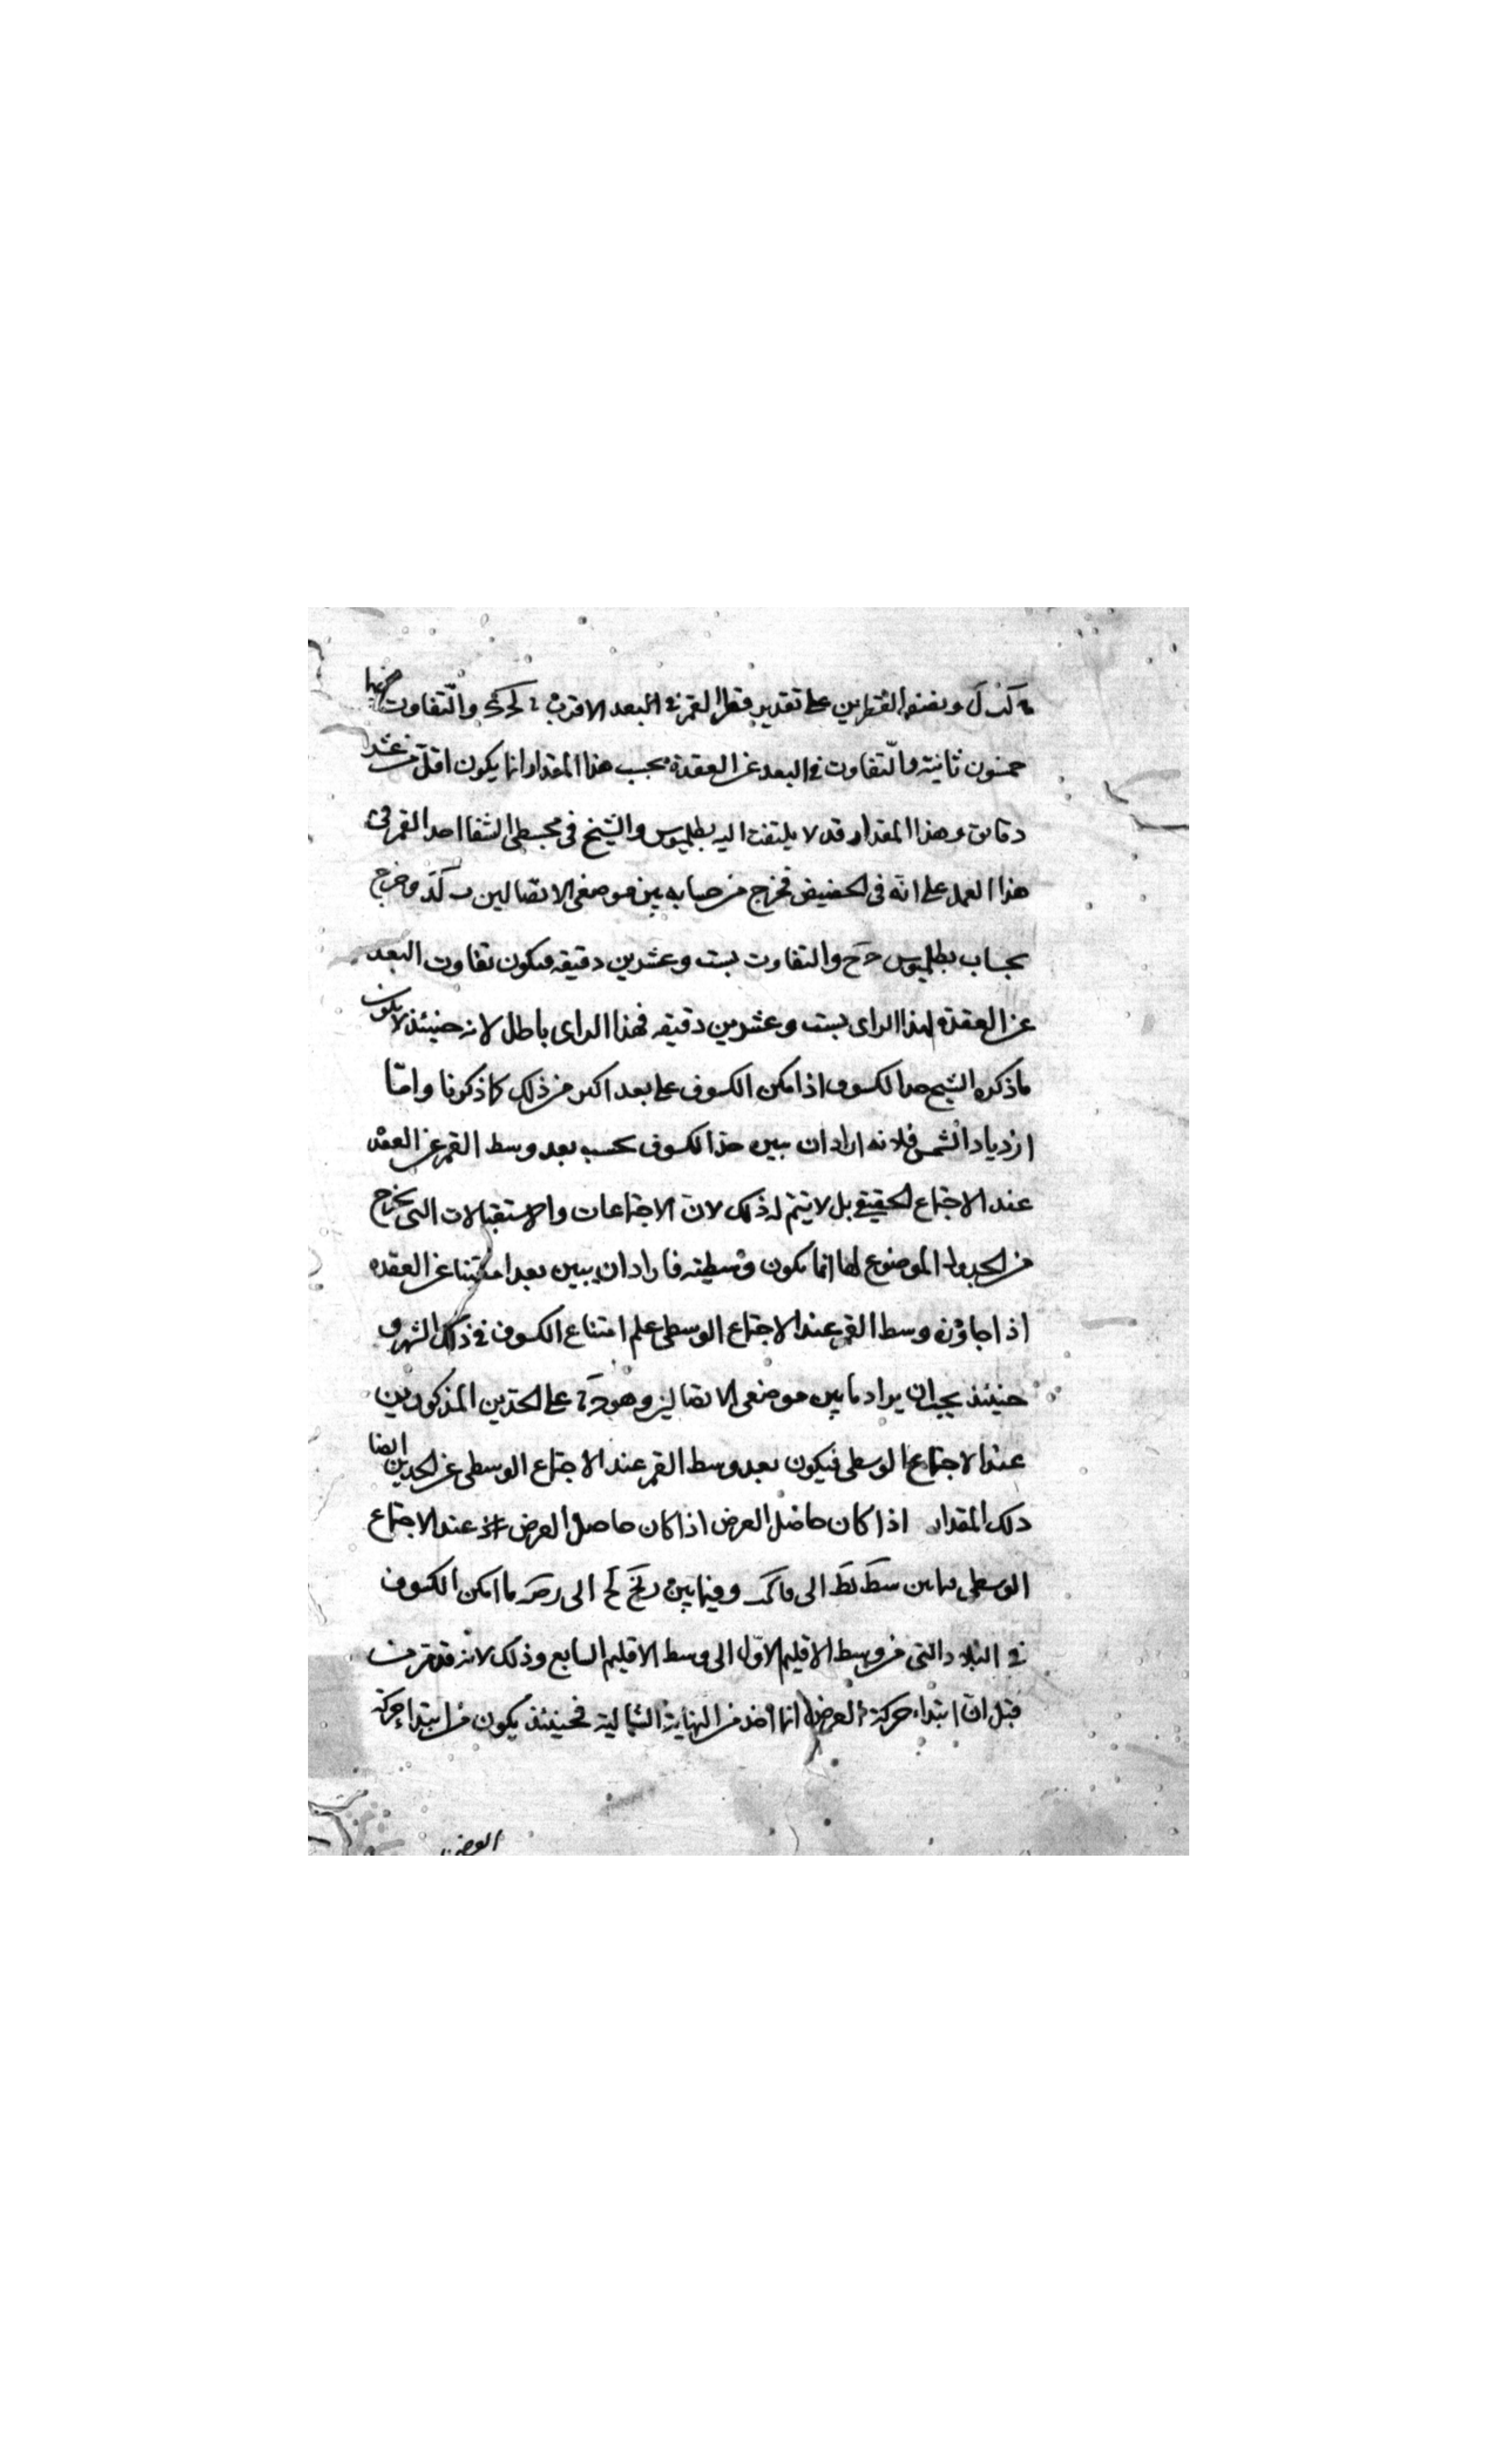 ونصف القطرين على تقدير قطر القمر في البعد الاقرب والتفاوت
خمسون ثانية والتفاوت في البعد عن العقدة بحسب هذا المقدار انما يكون اقل من عشر
دقايق وهذا المقدار قد لا يلتفت اليه بطلميوس والشيخ في مجسطى الشفا اخذ القمر في
هذا العمل على انه في الحضيض فخرج من حسابه بين موضعى الاتصالين وخرج
بحساب بطلميوس والتفاوت بست وعشرين دقيقه فيكون تفاوت البعد
عن العقدة لهذا الراى بست وعشرين دقيقه فهذا الراى باطل لانه حينئذ لا يكون
ماذكره الشيخ حد الكسوف اذ امكن الكسوف على بعد اكثر من ذلك كما ذكرنا وامّا
ازدياد الشمس فلانه اراد ان يبين حد الكسوف بحسب بعد وسط القمر عن العقده
عند الاجتماع الحقيقي بل لا يتم له ذلك لان الاجتماعات والاستقبالات التى يخرج
من الجدول الموضوع لها انما يكون وسطية فاراد ان يبين بعدا عن العقده
اذا جاوزه وسط القمر عند الاجتماع الوسطى علم امتناع الكسوف في ذلك الشهر و
حينئذ يجب ان يزاد ما بين موضعى الاتصالين وهو على الحدين المذكورين
عند الاجتماع الوسطى فيكون بعد وسط القمر عند الاجتماع الوسطى عن الحدين ايضا
ذلك المقدار اذا كان حاصل العرض اذا كان حاصل العرض عند الاجتماع
الوسطى فيما بين الى وفيما بين الى ما امكن الكسوف
في البلاد التى من وسط الاقليم الاوّل الى وسط الاقليم السابع وذلك لانه قد
قبل انّ ابتداء حركة العرض انما اخذ من النهاية الشمالية فحينئذ يكون من ابتداء حركة
العرض